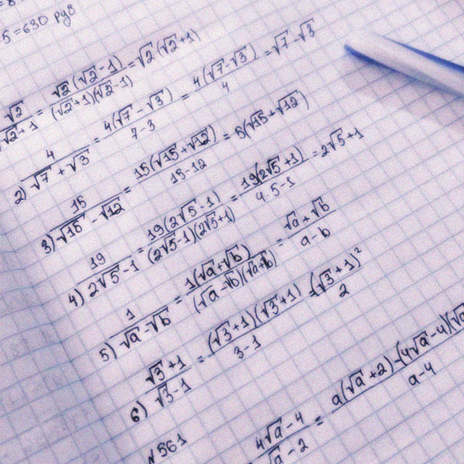 5=630 руб
√2/(√2+1) = √2(√2-1)/((√2+1)(√2-1)) = √2(√2+1)
2) 4/(√7+√3) = 4(√7-√3)/(7-3) = 4(√7-√3)/4 = √7-√3
3) 15/(√15-√12) = 15(√15+√12)/(15-12) = 5(√15+√12)
4) 19/(2√5-1) = 19(2√5-1)/((2√5-1)(2√5+1)) = 19(2√5+1)/(4·5-1) = 2√5+1
5) 1/(√a-√b) = 1(√a+√b)/((√a-√b)(√a+√b)) = (√a+√b)/(a-b)
6) (√3+1)/(√3-1) = (√3+1)(√3+1)/(3-1) = (√3+1)²/2
№561
(4√a-4)/(√a-2) = a(√a+2)-(4√a-4)(√a/(a-4)